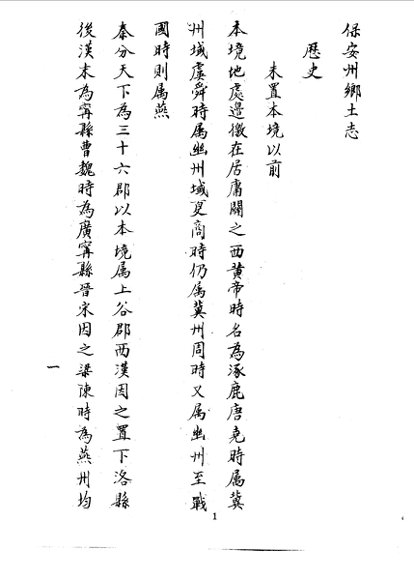 保安州鄉土志
歷史
未置本境以前
本境地處邊徼在居庸關之西黄帝時名為涿鹿唐堯時属冀
州域虞舜時属幽州域夏商時仍属冀州周時又属幽州至戰
國時則属燕
秦分天下為三十六郡以本境属上谷郡西漢因之置下洛縣
後漢末為甯縣曹魏時為廣甯縣晉宋因之梁陳時為燕州均
一
1